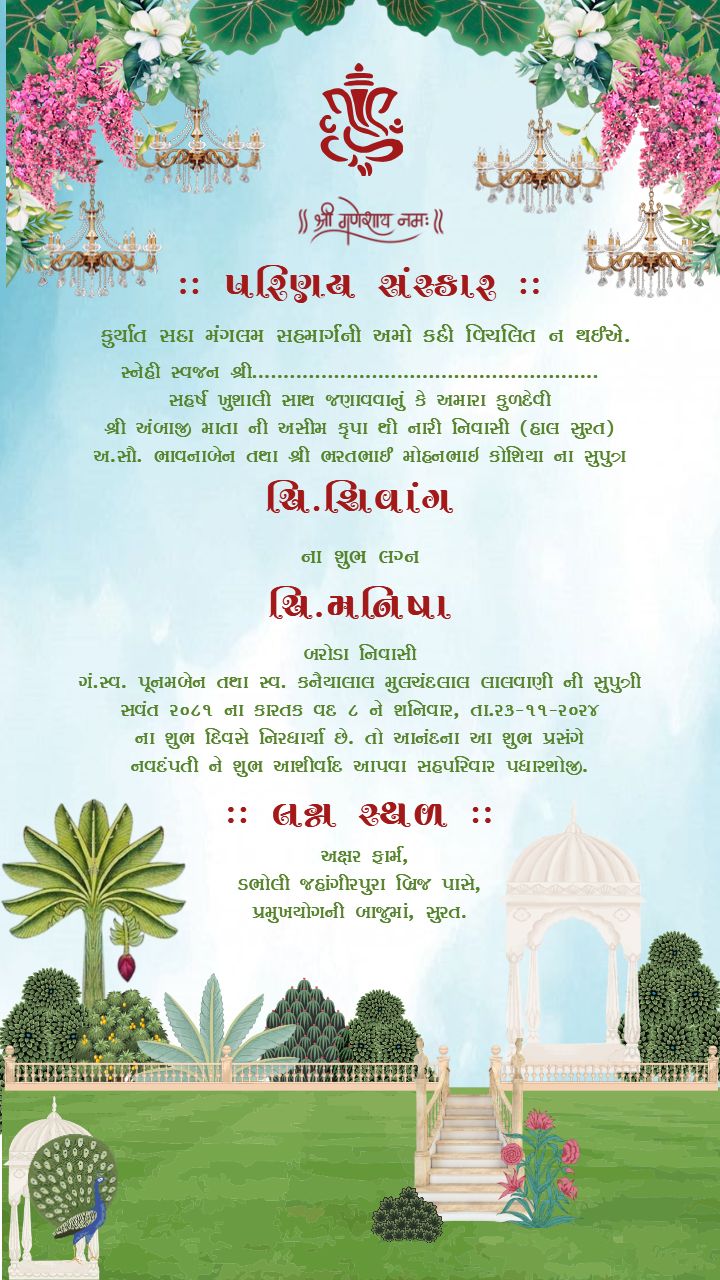 || श्री गणेशाय नमः ||
:: પરિણય સંસ્કાર ::
કુર્યાત સદા મંગલમ સહમાર્ગની અમો કદી વિચલિત ન થઈએ.
સ્નેહી સ્વજન શ્રી.......................................................
સહર્ષ ખુશાલી સાથ જણાવવાનું કે અમારા કુળદેવી
શ્રી અંબાજી માતા ની અસીમ કૃપા થી નારી નિવાસી (હાલ સુરત)
અ.સૌ. ભાવનાબેન તથા શ્રી ભરતભાઈ મોહનભાઇ કોશિયા ના સુપુત્ર
ચિ.શિવાંગ
ના શુભ લગ્ન
ચિ.મનિષા
બરોડા નિવાસી
ગં.સ્વ. પૂનમબેન તથા સ્વ. કનૈયાલાલ મુલચંદલાલ લાલવાણી ની સુપુત્રી
સવંત ૨૦૮૧ ના કારતક વદ ૮ ને શનિવાર, તા.૨૩-૧૧-૨૦૨૪
ના શુભ દિવસે નિરધાર્યા છે. તો આનંદના આ શુભ પ્રસંગે
નવદંપતી ને શુભ આશીર્વાદ આપવા સહપરિવાર પધારશોજી.
:: લગ્ન સ્થળ ::
અક્ષર ફાર્મ,
ડભોલી જહાંગીરપુરા બ્રિજ પાસે,
પ્રમુખયોગની બાજુમાં, સુરત.